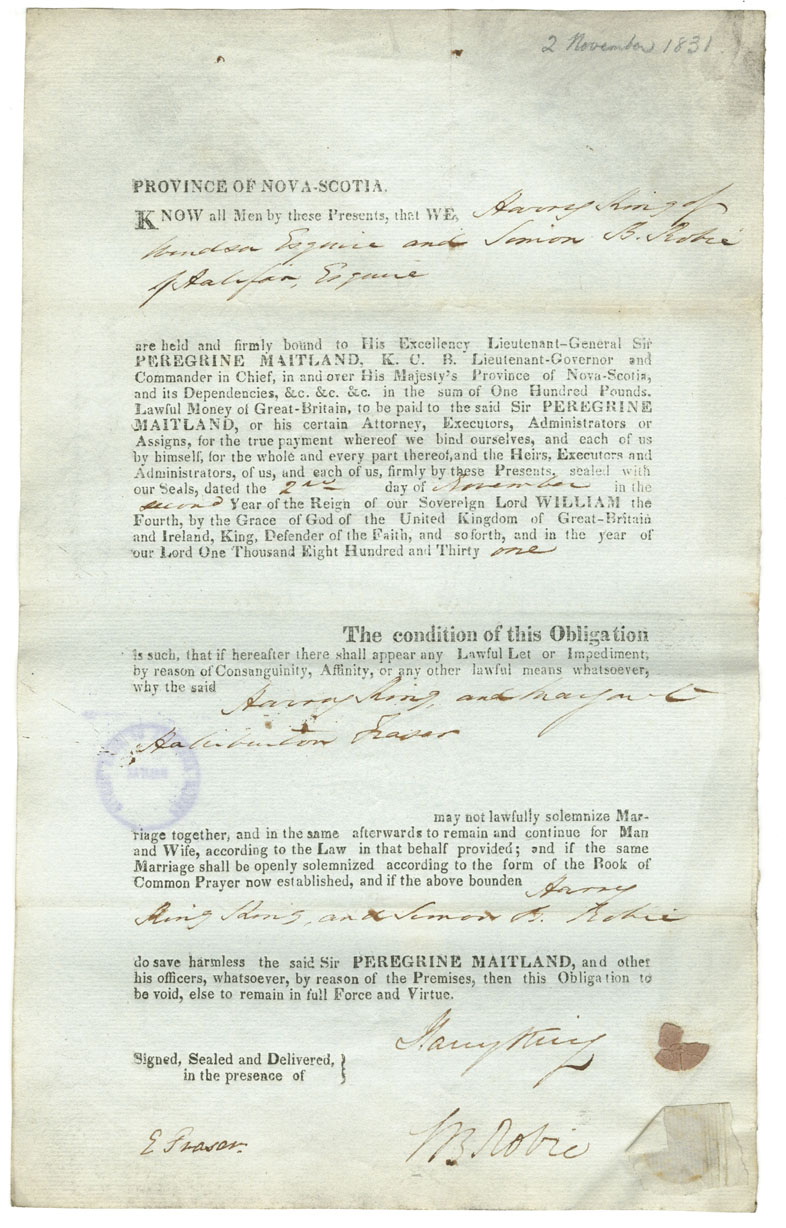 2 November 1831
PROVINCE OF NOVA-SCOTIA.
KNOW all Men by these Presents, that WE, Harry King of
Windsor Esquire and Simon B. Robie
of Halifax, Esquire
are held and firmly bound to His Excellency Lieutenant-General Sir
PEREGRINE MAITLAND, K. C. B. Lieutenant-Governor and
Commander in Chief, in and over His Majesty's Province of Nova-Scotia,
and its Dependencies, &c. &c. &c. in the sum of One Hundred Pounds.
Lawful Money of Great-Britain, to be paid to the said Sir PEREGRINE
MAITLAND, or his certain Attorney, Executors, Administrators or
Assigns, for the true payment whereof we bind ourselves, and each of us
by himself, for the whole and every part thereof, and the Heirs, Executors and
Administrators, of us, and each of us, firmly by these Presents, sealed with
our Seals, dated the 2nd day of November in the
second Year of the Reign of our Sovereign Lord WILLIAM the
Fourth, by the Grace of God of the United Kingdom of Great-Britain
and Ireland, King, Defender of the Faith, and soforth, and in the year of
our Lord One Thousand Eight Hundred and Thirty one
The condition of this Obligation
is such, that if hereafter there shall appear any Lawful Let or Impediment,
by reason of Consanguinity, Affinity, or any other lawful means whatsoever,
why the said Harry King, and Margaret
Haliburton Fraser
may not lawfully solemnize Mar-
riage together, and in the same afterwards to remain and continue for Man
and Wife, according to the Law in that behalf provided; and if the same
Marriage shall be openly solemnized according to the form of the Book of
Common Prayer now established, and if the above bounden Harry
King King, and Simon B. Robie
do save harmless the said Sir PEREGRINE MAITLAND, and other
his officers, whatsoever, by reason of the Premises, then this Obligation to
be void, else to remain in full Force and Virtue.
Harry King
Signed, Sealed and Delivered,
in the presence of
E Fraser.
SB Robie